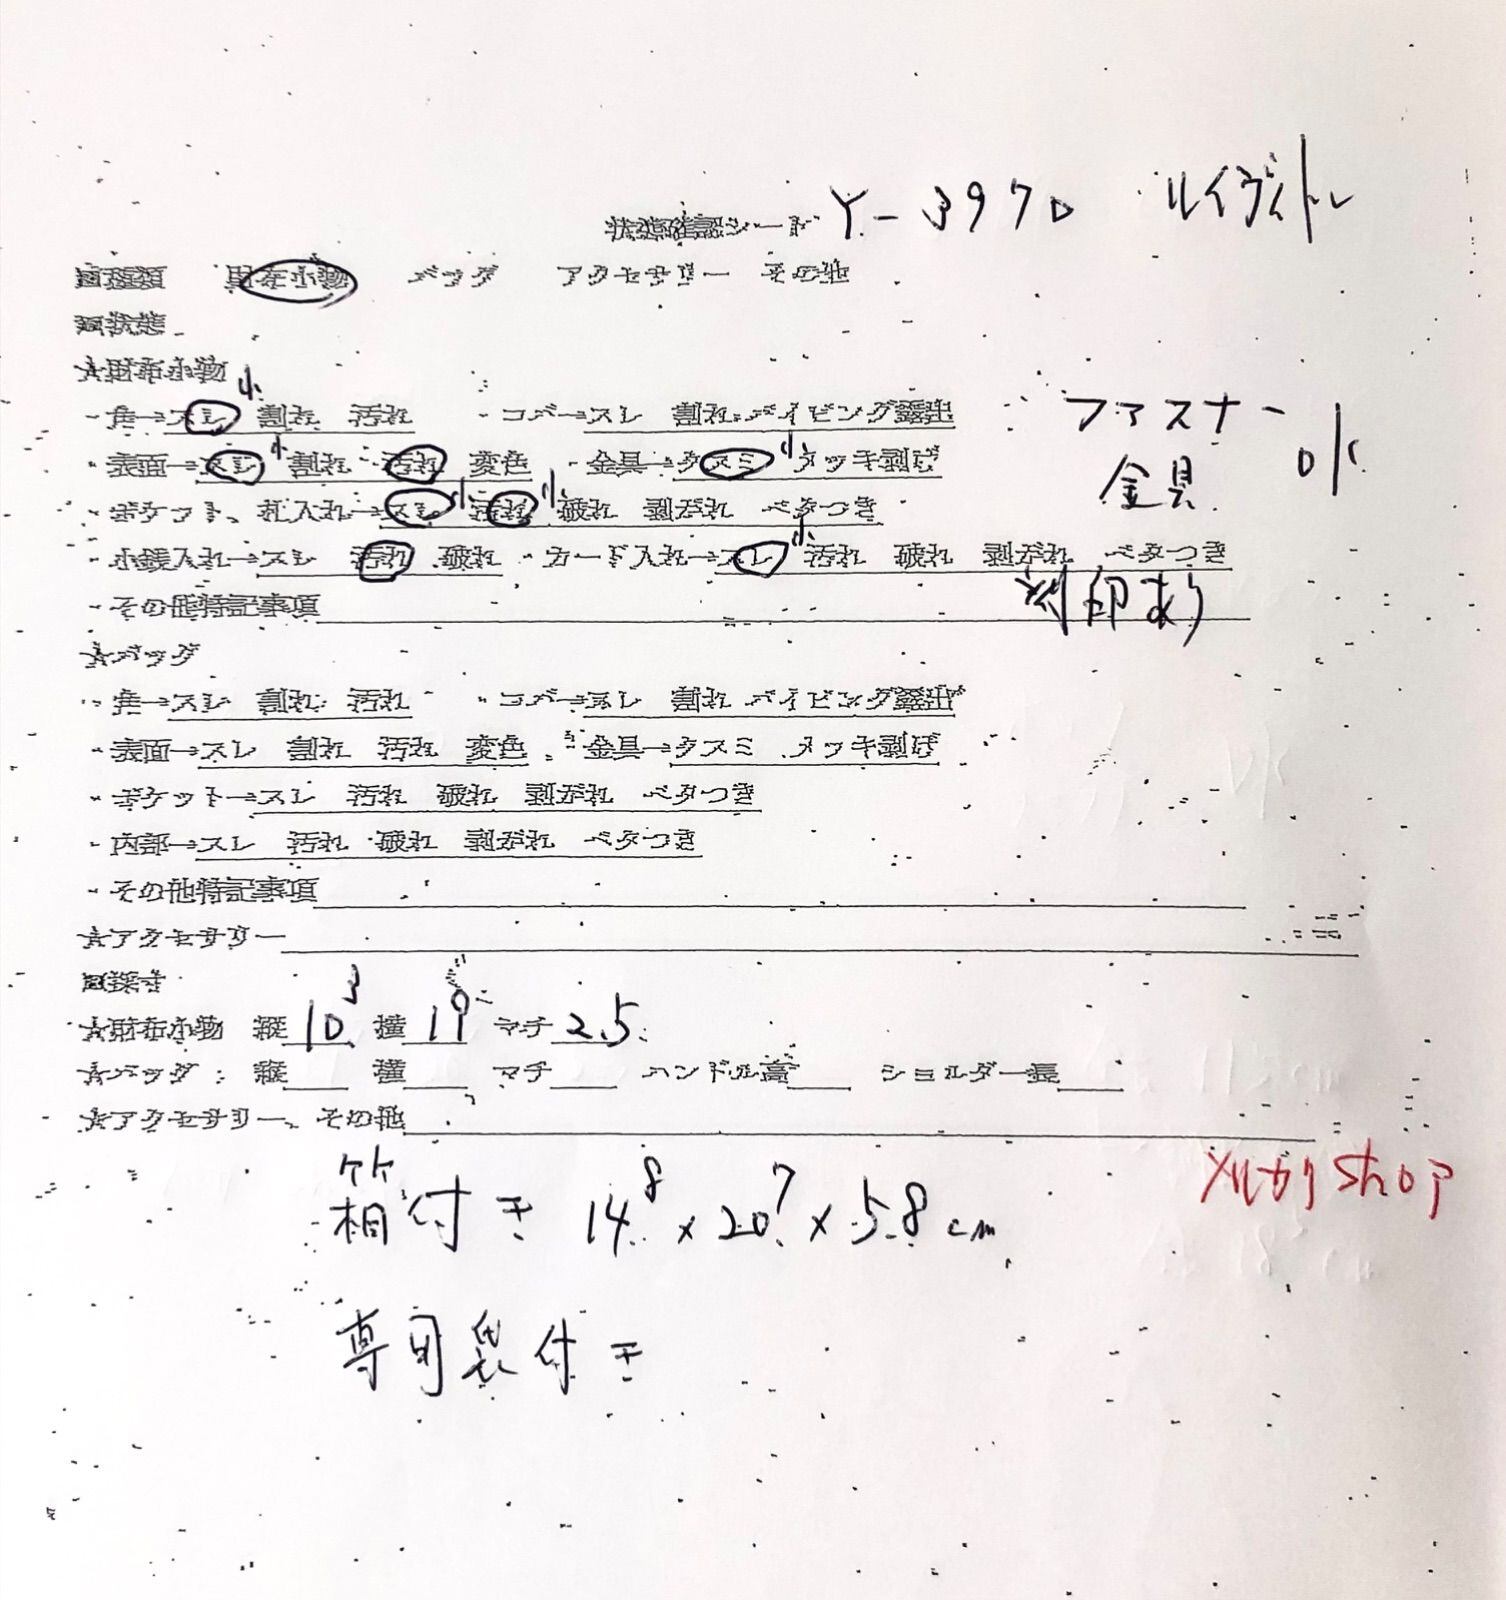 状態確認シート Y-3970 ルイヴィトン
□種類 財布小物 バッグ アクセサリー その他
□状態
★財布小物
・角→スレ 小 割れ 汚れ ・コバ→スレ 割れ パイピング露出 ファスナー
・表面→スレ 小 割れ 汚れ 変色 ・金具→クスミ 小 メッキ剥げ 金具 OK
・ポケット、札入れ→スレ 小 汚れ 小 破れ 剥がれ ベタつき
・小銭入れ→スレ 汚れ 破れ ・カード入れ→スレ 小 汚れ 破れ 剥がれ ベタつき
・その他特記事項 刻印あり
★バッグ
・角→スレ 割れ 汚れ ・コバ→スレ 割れ パイピング露出
・表面→スレ 割れ 汚れ 変色 ・金具→クスミ メッキ剥げ
・ポケット→スレ 汚れ 破れ 剥がれ ベタつき
・内部→スレ 汚れ 破れ 剥がれ ベタつき
・その他特記事項
★アクセサリー
□採寸
★財布小物 縦 10.3 横 19 マチ 2.5
★バッグ: 縦 横 マチ ハンドル高 ショルダー長
★アクセサリー、その他
メルカリShop
箱付き 14.8×20.7×5.8cm
専用袋付き